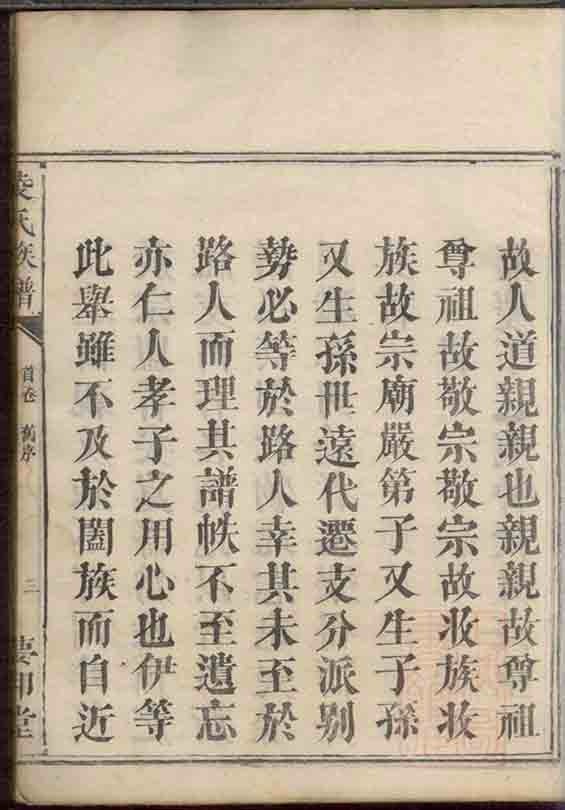 故人道親親也親親故尊祖
尊祖故敬宗敬宗故收族收
族故宗廟嚴第子又生子孫
又生孫世遠代遷支分派别
勢必等於路人幸其未至於
路人而理其譜帙不至遺忘
亦仁人孝子之用心也伊等
此舉雖不及於闔族而自近
氏族譜
首卷
舊序
三
堂